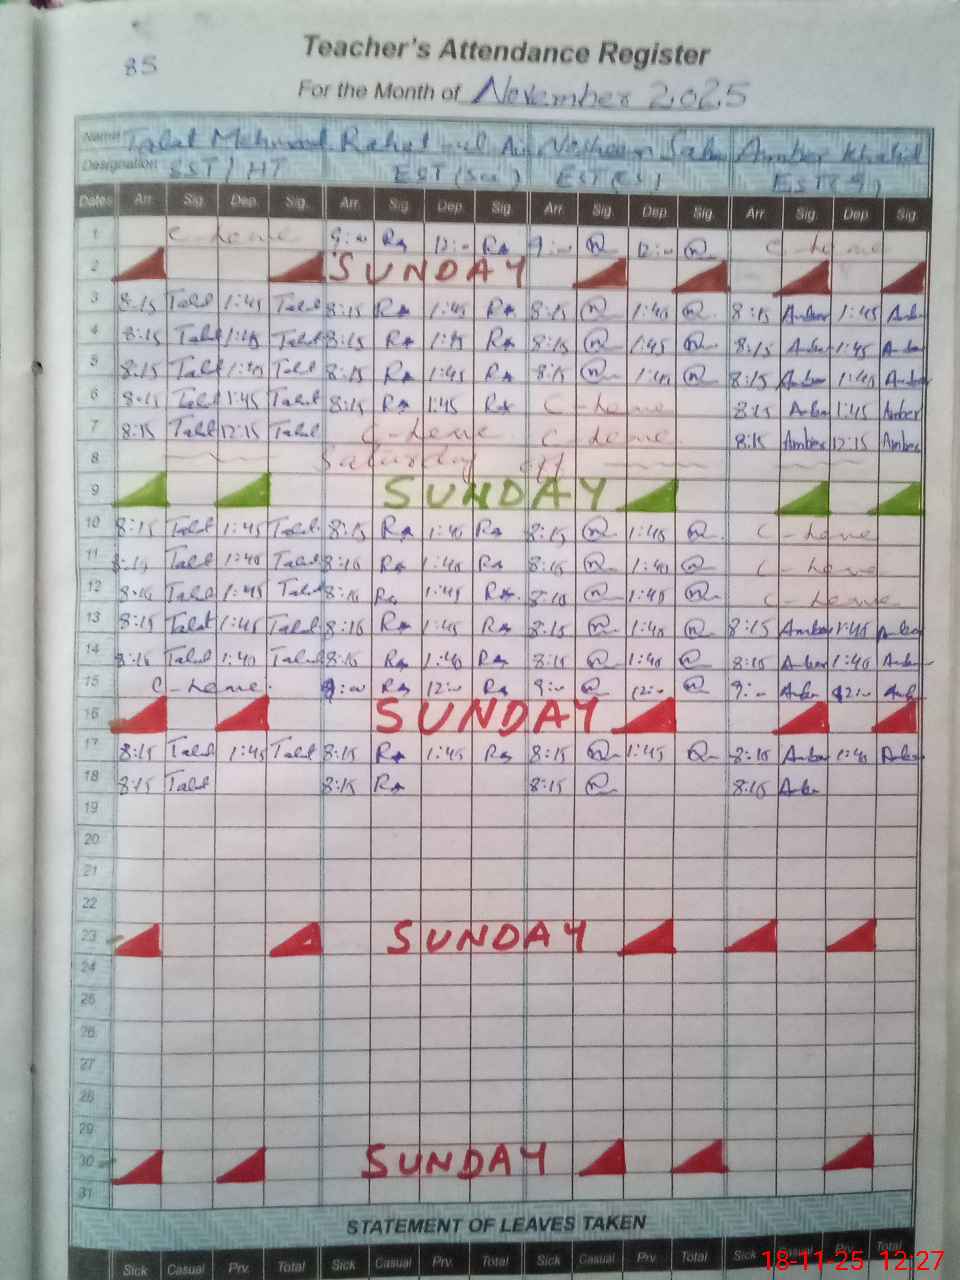 85
Teacher's Attendance Register
For the Month of November 2025
Name Talat Mehmood Rahat Nosheen Amber Khalid
Designation SST/HT EST (Sci) EST EST
Dates Arr. Sig. Dep. Sig. Arr. Sig. Dep. Sig. Arr. Sig. Dep. Sig. Arr. Sig. Dep. Sig.
1 C-Leave 9:00 Ra 12:00 Ra 9:00 12:00 C-Leave
2 SUNDAY
3 8:15 Talat 1:45 Talat 8:15 Ra 1:45 Ra 8:15 1:45 8:15 Amber 1:45 Amber
4 8:15 Talat 1:45 Talat 8:15 Ra 1:45 Ra 8:15 1:45 8:15 Amber 1:45 Amber
5 8:15 Talat 1:45 Talat 8:15 Ra 1:45 Ra 8:15 1:45 8:15 Amber 1:45 Amber
6 8:15 Talat 1:45 Talat 8:15 Ra 1:45 Ra C-Leave 8:15 Amber 1:45 Amber
7 8:15 Talat 12:15 Talat C-Leave C-Leave 8:15 Amber 12:15 Amber
8 Saturday off
9 SUNDAY
10 8:15 Talat 1:45 Talat 8:15 Ra 1:45 Ra 8:15 1:45 C-Leave
11 8:15 Talat 1:45 Talat 8:15 Ra 1:45 Ra 8:15 1:45 C-Leave
12 8:15 Talat 1:45 Talat 8:15 Ra 1:45 Ra 8:15 1:45 C-Leave
13 8:15 Talat 1:45 Talat 8:15 Ra 1:45 Ra 8:15 1:45 8:15 Amber 1:45 Amber
14 8:15 Talat 1:45 Talat 8:15 Ra 1:45 Ra 8:15 1:45 8:15 Amber 1:45 Amber
15 C-Leave 9:00 Ra 12:00 Ra 9:00 12:00 9:00 Amber 12:00 Amber
16 SUNDAY
17 8:15 Talat 1:45 Talat 8:15 Ra 1:45 Ra 8:15 1:45 8:15 Amber 1:45 Amber
18 8:15 Talat 8:15 Ra 8:15 8:15 Amber
19
20
21
22
23 SUNDAY
24
25
26
27
28
29
30 SUNDAY
31
STATEMENT OF LEAVES TAKEN
Sick Casual Prv. Total Sick Casual Prv. Total Sick Casual Prv. Total Sick Casual Prv. Total
18-11-25 12:27